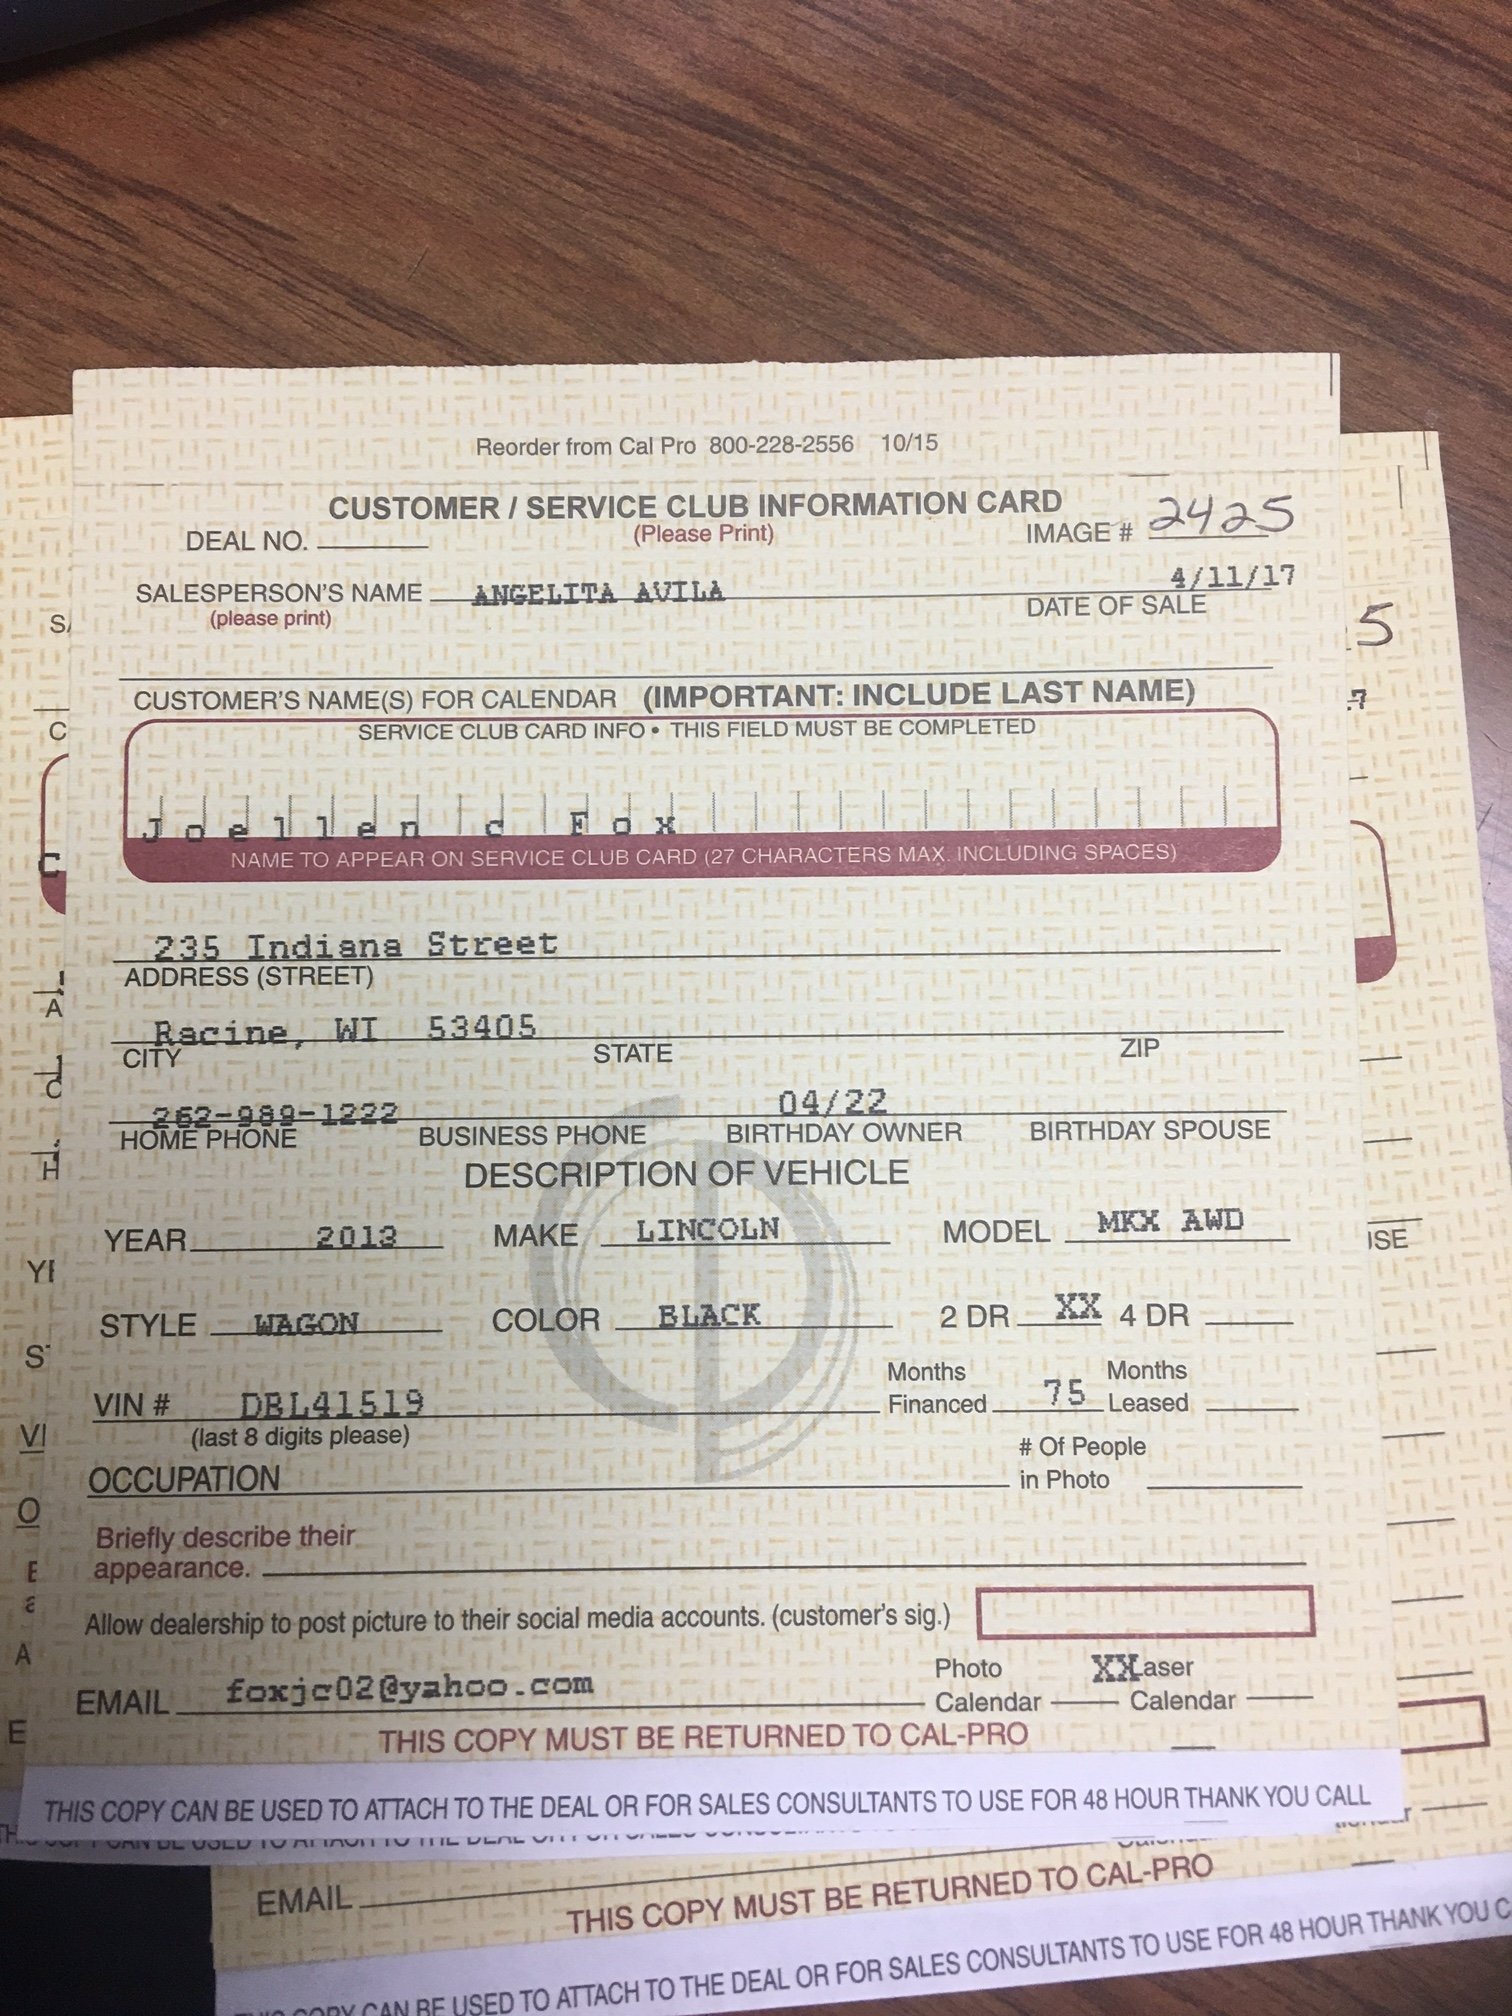 Reorder from Cal Pro 800-228-2556 10/15
CUSTOMER / SERVICE CLUB INFORMATION CARD
DEAL NO. (Please Print) IMAGE # 2425
SALESPERSON'S NAME ANGELITA AVILA 4/11/17
(please print) DATE OF SALE
CUSTOMER'S NAME(S) FOR CALENDAR (IMPORTANT: INCLUDE LAST NAME)
SERVICE CLUB CARD INFO • THIS FIELD MUST BE COMPLETED
Joellen c Fox
NAME TO APPEAR ON SERVICE CLUB CARD (27 CHARACTERS MAX. INCLUDING SPACES)
235 Indiana Street
ADDRESS (STREET)
Racine, WI 53405
CITY STATE ZIP
262-989-1222 04/22
HOME PHONE BUSINESS PHONE BIRTHDAY OWNER BIRTHDAY SPOUSE
DESCRIPTION OF VEHICLE
YEAR 2013 MAKE LINCOLN MODEL MKX AWD
STYLE WAGON COLOR BLACK 2 DR XX 4 DR
Months Months
VIN # DBL41519 Financed 75 Leased
(last 8 digits please)
# Of People
OCCUPATION in Photo
Briefly describe their
appearance.
Allow dealership to post picture to their social media accounts. (customer's sig.)
Photo XXLaser
EMAIL foxjc02@yahoo.com Calendar Calendar
THIS COPY MUST BE RETURNED TO CAL-PRO
THIS COPY CAN BE USED TO ATTACH TO THE DEAL OR FOR SALES CONSULTANTS TO USE FOR 48 HOUR THANK YOU CALL
EMAIL
THIS COPY MUST BE RETURNED TO CAL-PRO
COPY CAN BE USED TO ATTACH TO THE DEAL OR FOR SALES CONSULTANTS TO USE FOR 48 HOUR THANK YOU C